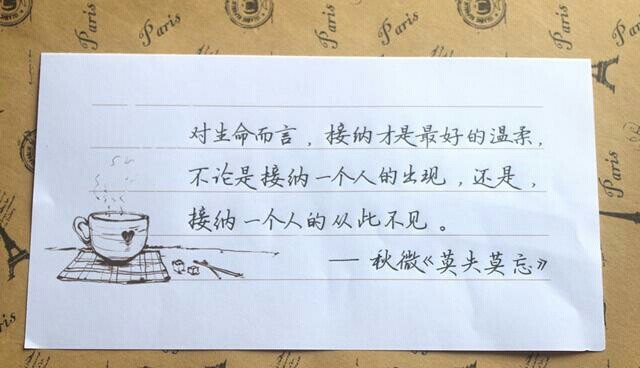 Paris
Paris
Paris
Paris
对生命而言，接纳才是最好的温柔，
不论是接纳一个人的出现，还是，
接纳一个人的从此不见。
— 秋微《莫失莫忘》
Paris
Paris
Paris